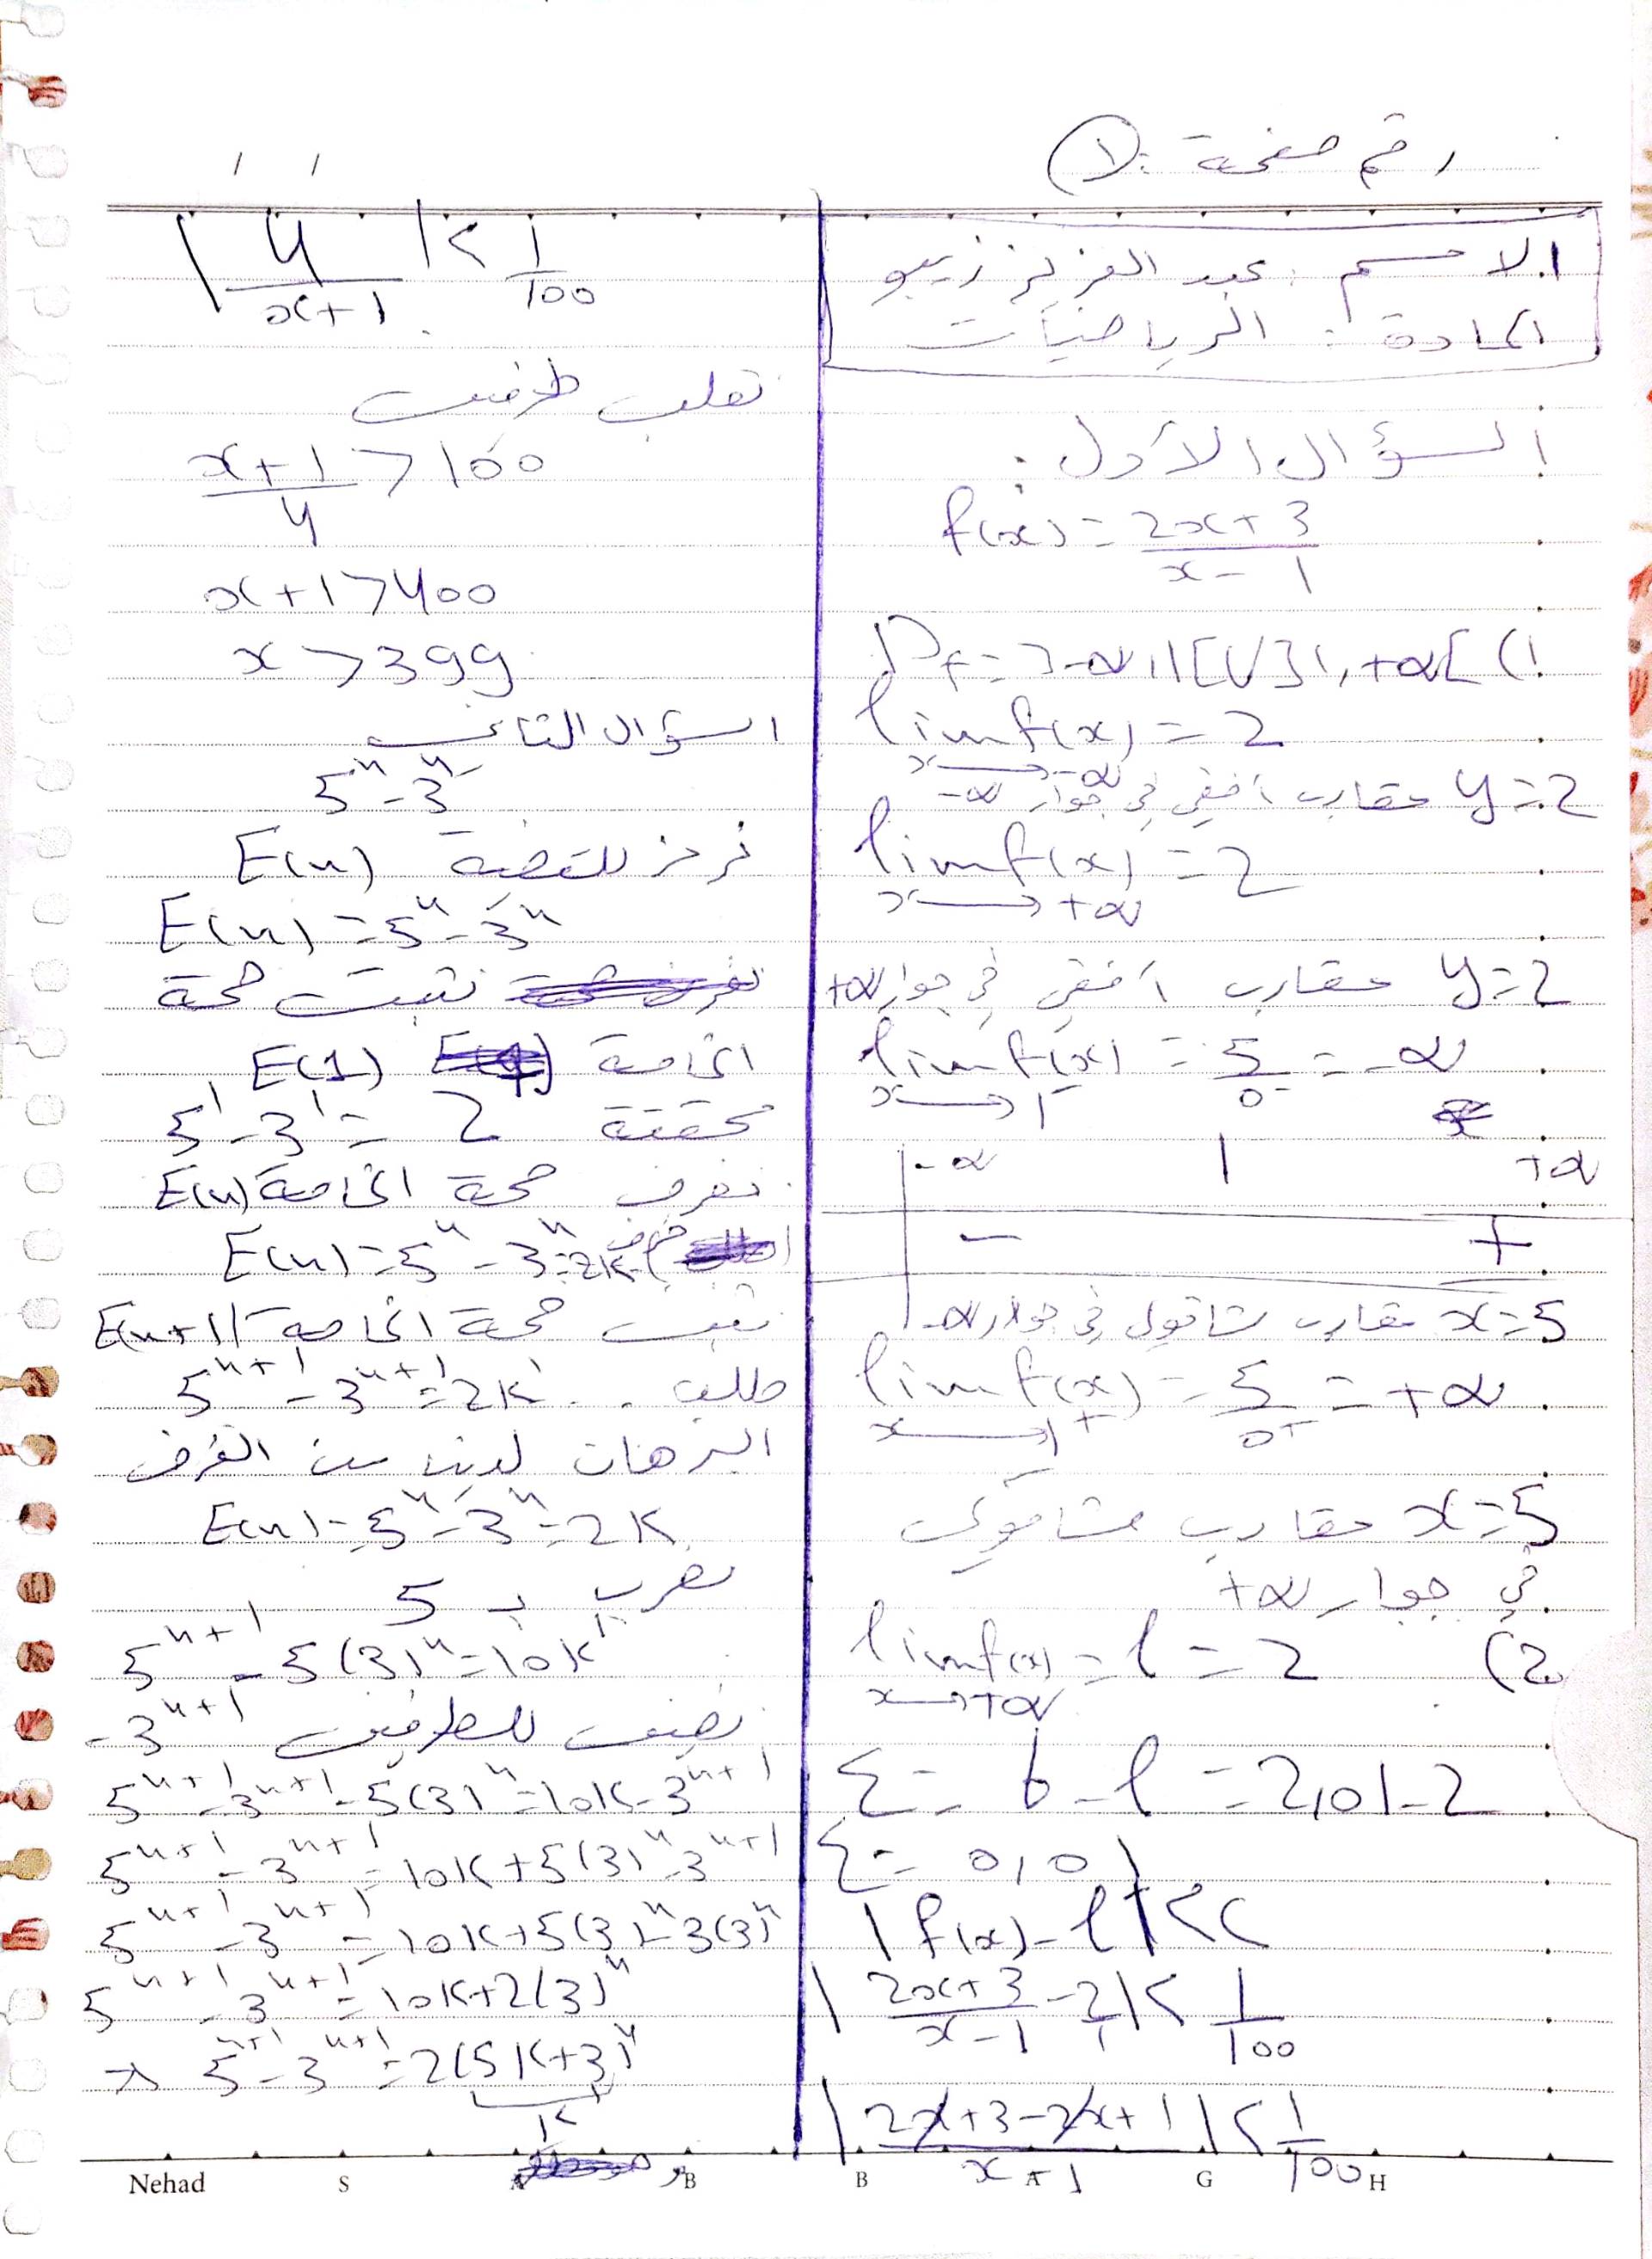 رقم صفحة: ١
الاسم: عبد العزيز زيبو
المادة: الرياضيات
السؤال الأول:
f(x) = \frac{2x+3}{x-1}
(1 D_f = ]-∞,1[ U ]1,+∞[
lim f(x) = 2
x→-∞
y=2 مقارب أفقي في جوار -∞
lim f(x) = 2
x→+∞
y=2 مقارب أفقي في جوار +∞
lim f(x) = \frac{5}{0^-} = -∞
x→1^-
-∞ 1 +∞
- +
x=5 مقارب شاقولي في جوار -∞
lim f(x) = \frac{5}{0^+} = +∞
x→1^+
x=5 مقارب شاقولي
في جوار +∞
(2 lim f(x) = l = 2
x→+∞
Ɛ = b - l = 2,01 - 2
Ɛ = 0,01
|f(x) - l| < Ɛ
|\frac{2x+3}{x-1} - \frac{2}{1}| < \frac{1}{100}
|\frac{2x+3-2x+1}{x+1}| < \frac{1}{100}
|\frac{4}{x+1}| < \frac{1}{100}
نقلب طرفين
\frac{x+1}{4} > 100
x+1 > 400
x > 399
السؤال الثاني
5^n - 3^n
نرمز للقضية E(n)
E(n) = 5^n - 3^n
نثبت صحة
الخاصة E(1)
محققة 5^1 - 3^1 = 2
نفرض صحة الخاصة E(n)
فرض E(n) = 5^n - 3^n = 2k
نثبت صحة الخاصة E(n+1)
طلب .. 5^{n+1} - 3^{n+1} = 2k'
البرهان لدينا من الفرض
E(n) = 5^n - 3^n = 2k
نضرب بـ 5
5^{n+1} - 5(3)^n = 10k
نضيف للطرفين -3^{n+1}
5^{n+1} - 3^{n+1} - 5(3)^n = 10k - 3^{n+1}
5^{n+1} - 3^{n+1} = 10k + 5(3)^n - 3^{n+1}
5^{n+1} - 3^{n+1} = 10k + 5(3)^n - 3(3)^n
5^{n+1} - 3^{n+1} = 10k + 2(3)^n
→ 5^{n+1} - 3^{n+1} = 2(5k+3)^n
k'
Nehad S B B G H